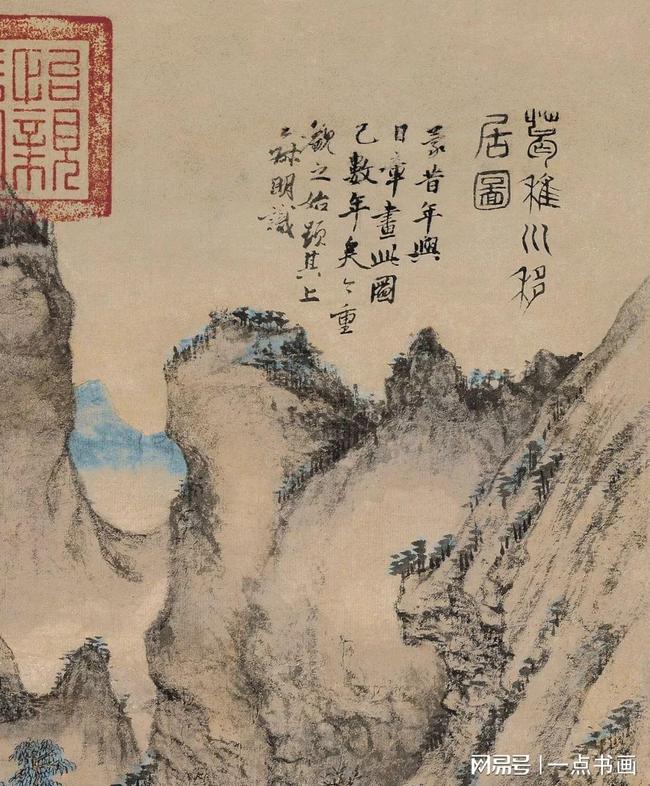 葛稚川移
居圖
蒙昔年與
日章畫此圖
已數年矣今重
觀之始題其上
王叔明識
怡親
网易号 | 一点书画